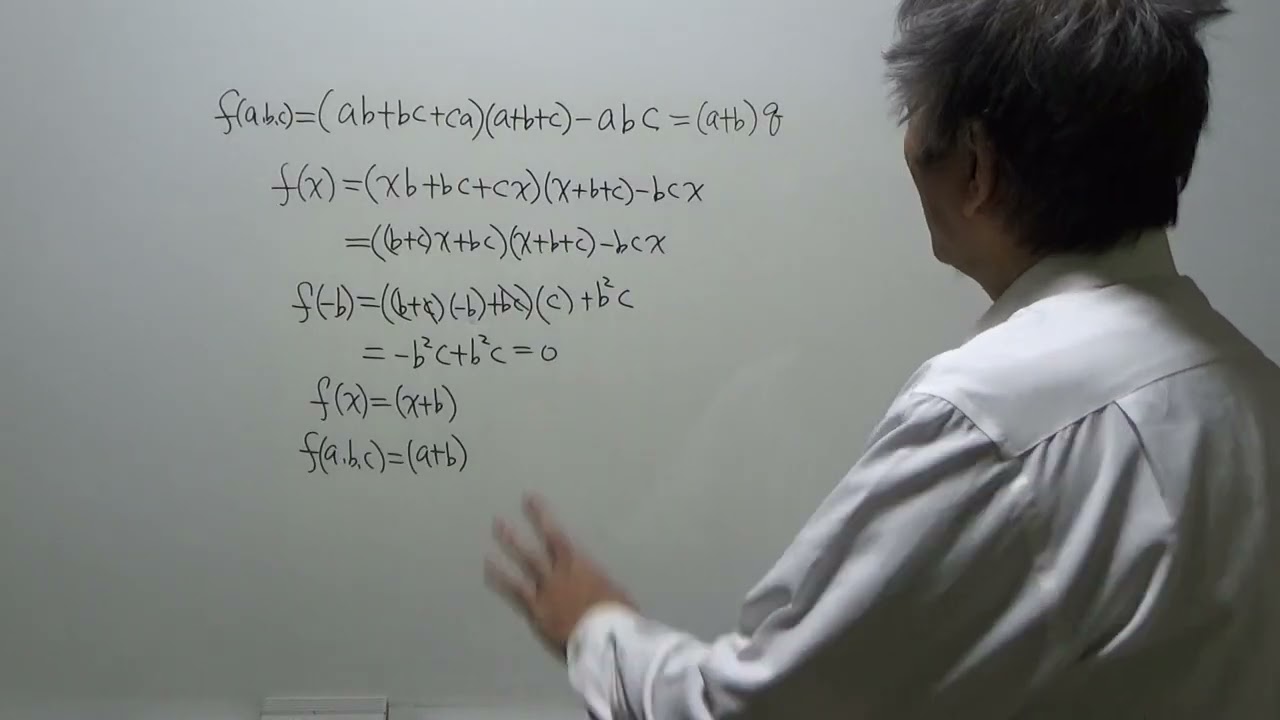 f(a.b.c)=(ab+bc+ca)(a+b+c)-abc=(a+b)g
f(x)=(xb+bc+cx)(x+b+c)-bcx
=((b+c)x+bc)(x+b+c)-bcx
f(-b)=((b+c)(-b)+bc)(c)+b²c
=-b²c+b²c=0
f(x)=(x+b)
f(a.b.c)=(a+b)